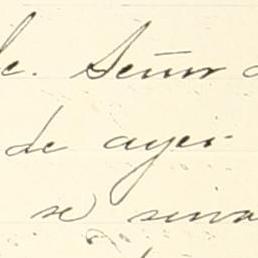 le. Señor
de ayer
se sirva